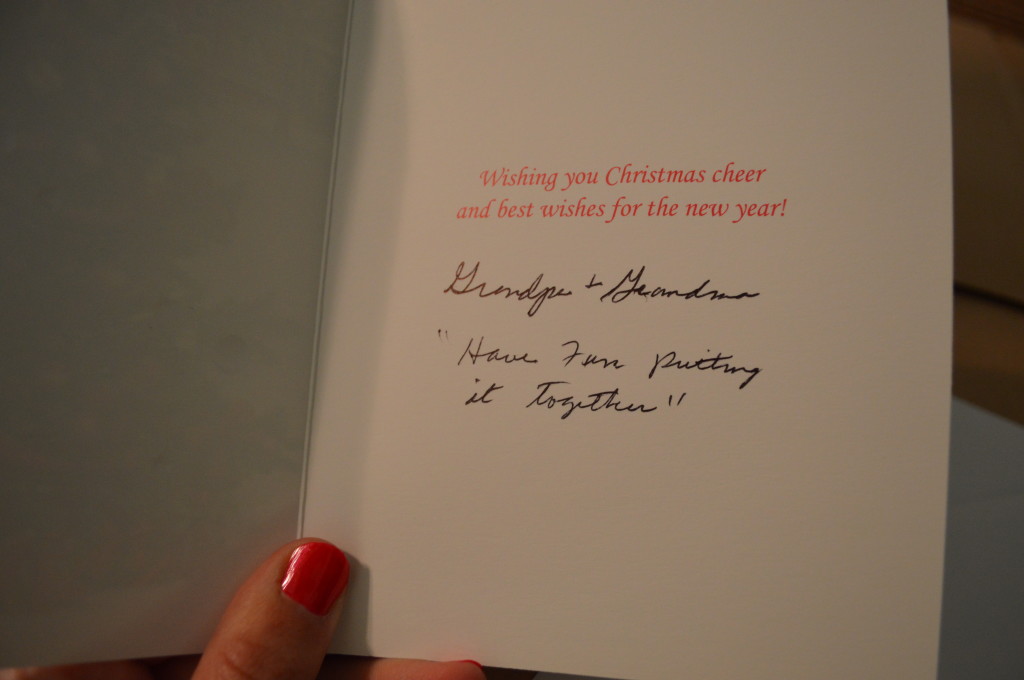 Wishing you Christmas cheer
and best wishes for the new year!
Grandpa + Grandma
"Have Fun putting
it together"